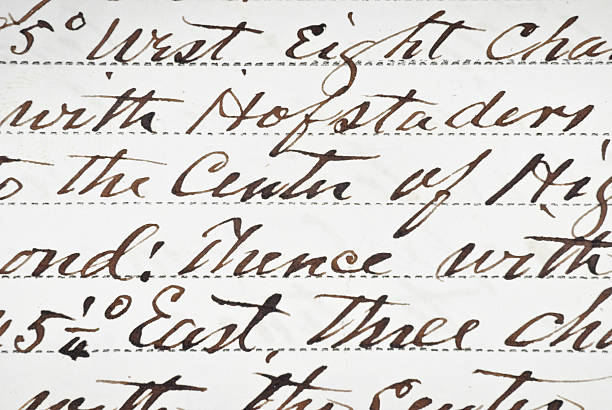 5° West Eight Cha
with Hofstaders
to the Center of Hig
ond; Thence with
45 1/4° East, Three cha
with the Center